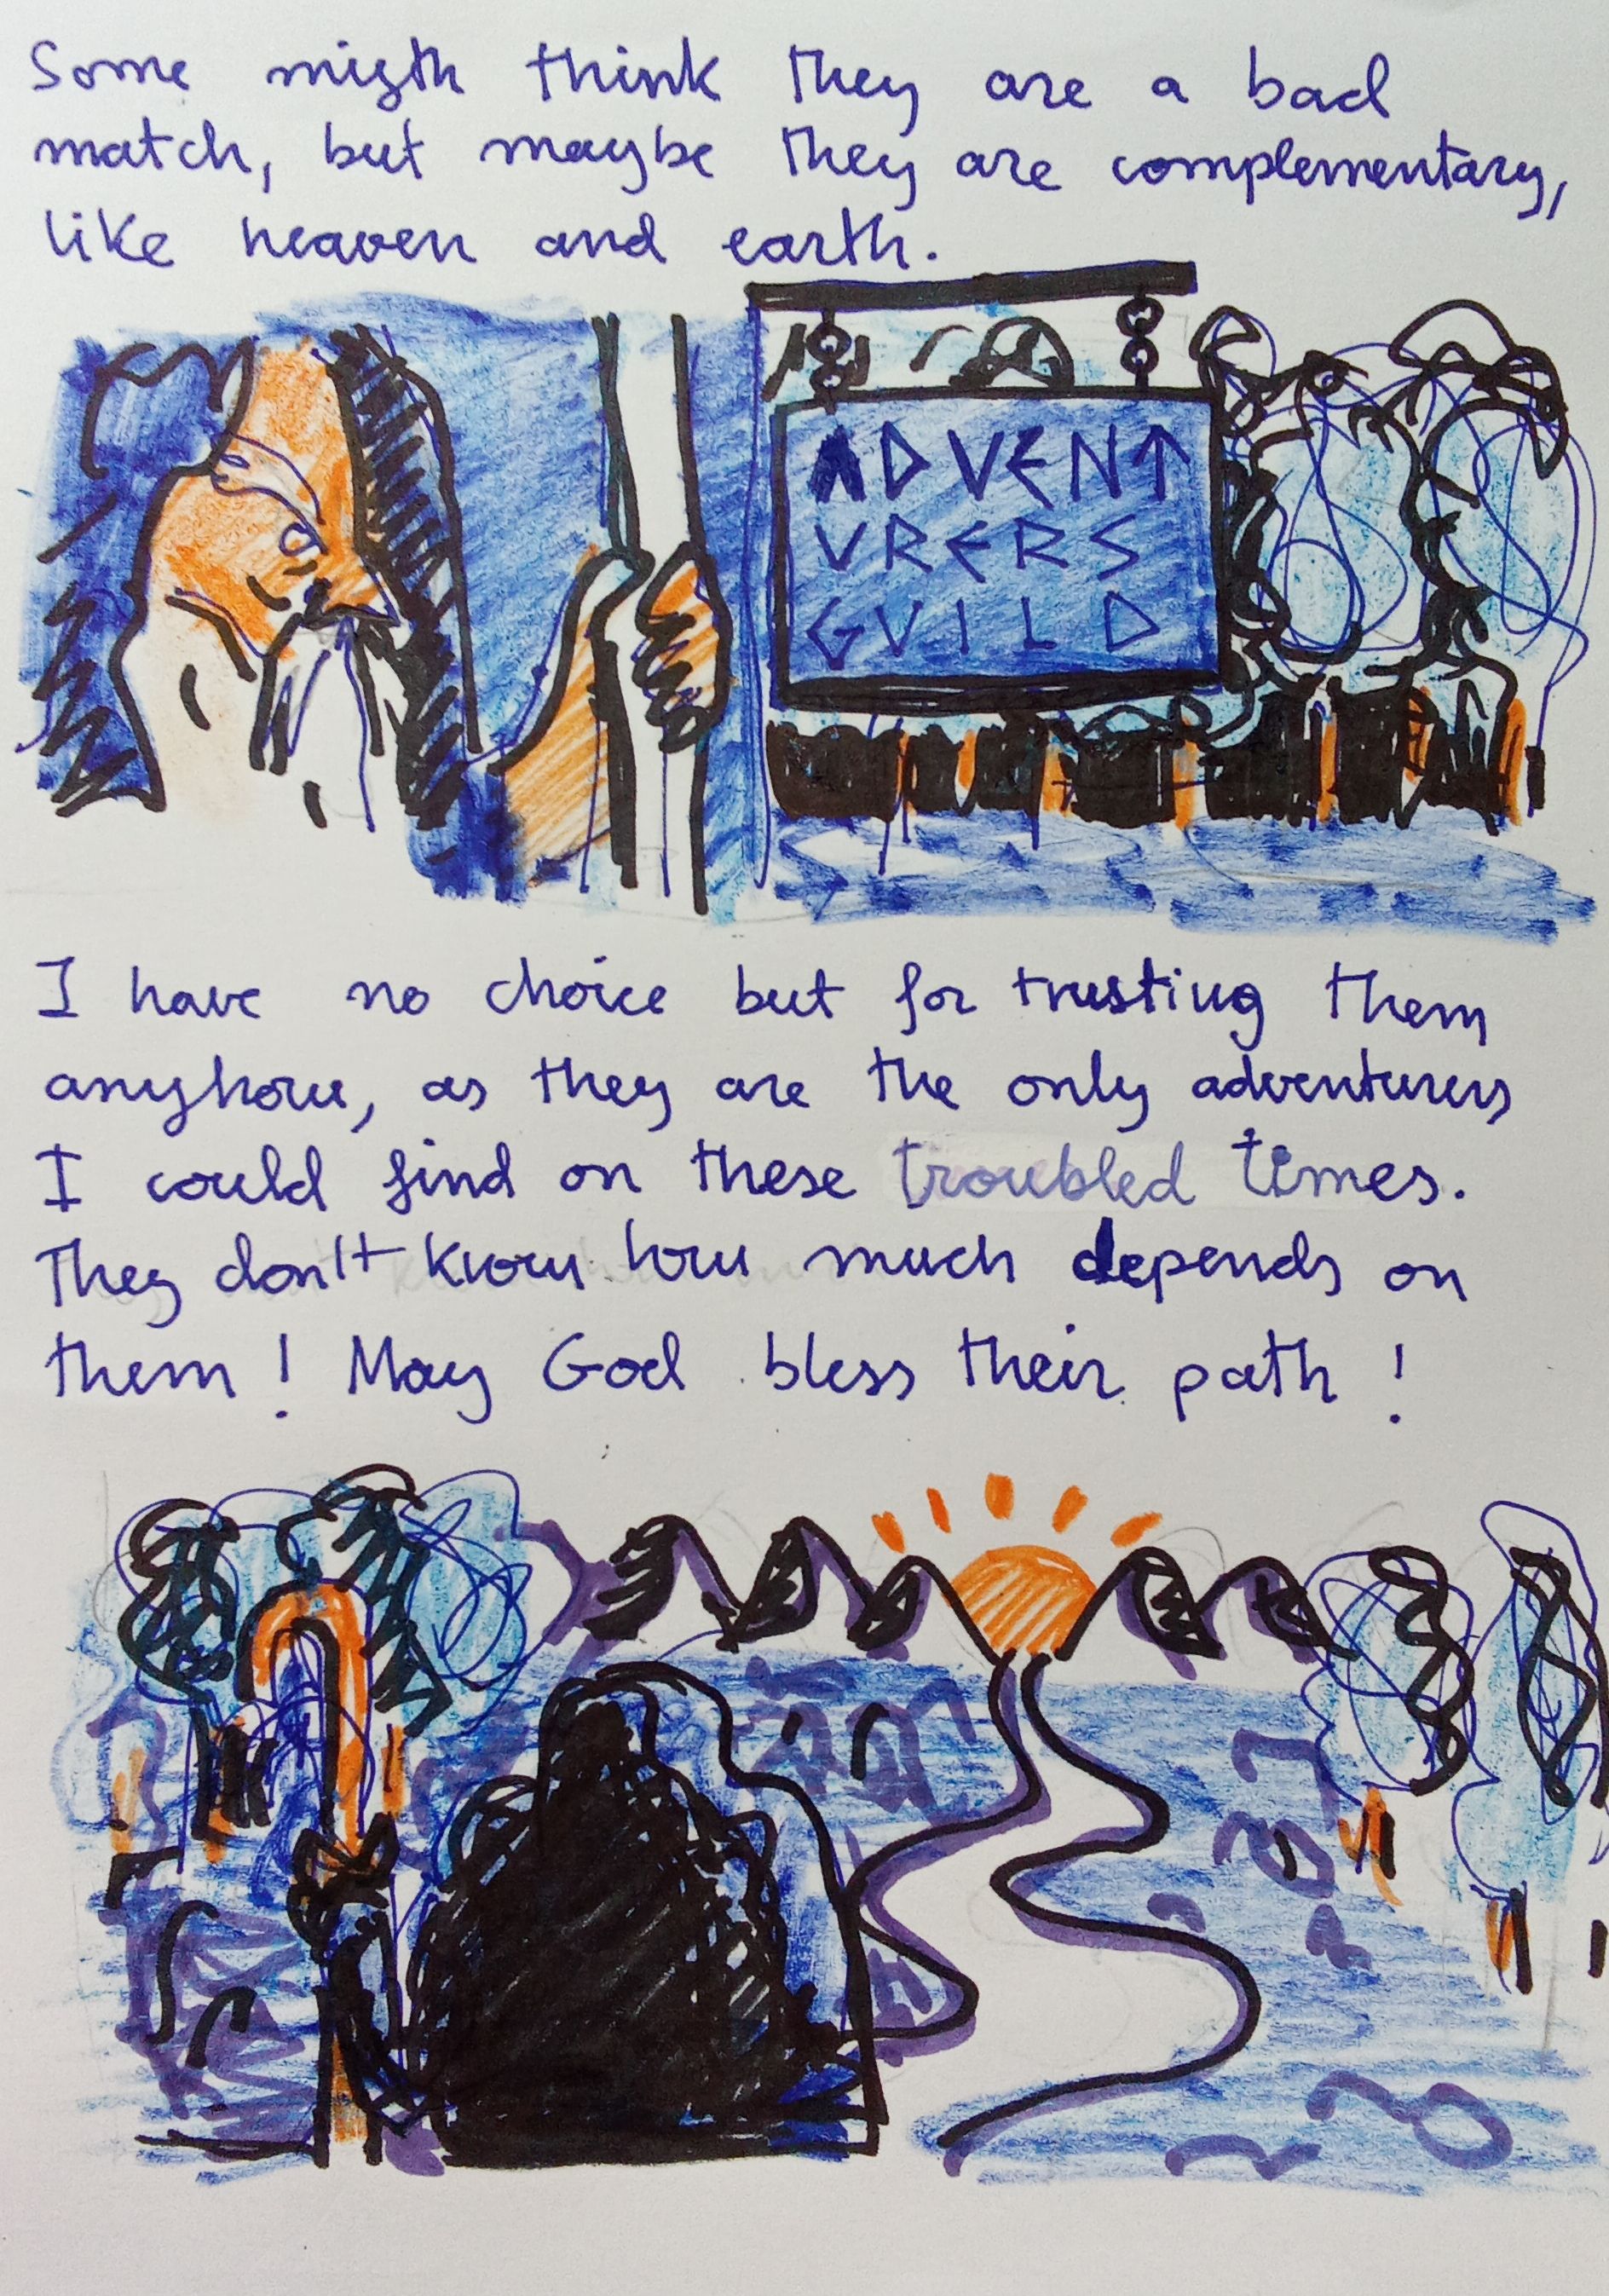 Some migth think they are a bad
match, but maybe they are complementary,
like heaven and earth.
ADVENT
VRERS
GVILD
I have no choice but for trusting them
anyhow, as they are the only adventurers
I could find on these troubled times.
They don't know how much depends on
them! May God bless their path!